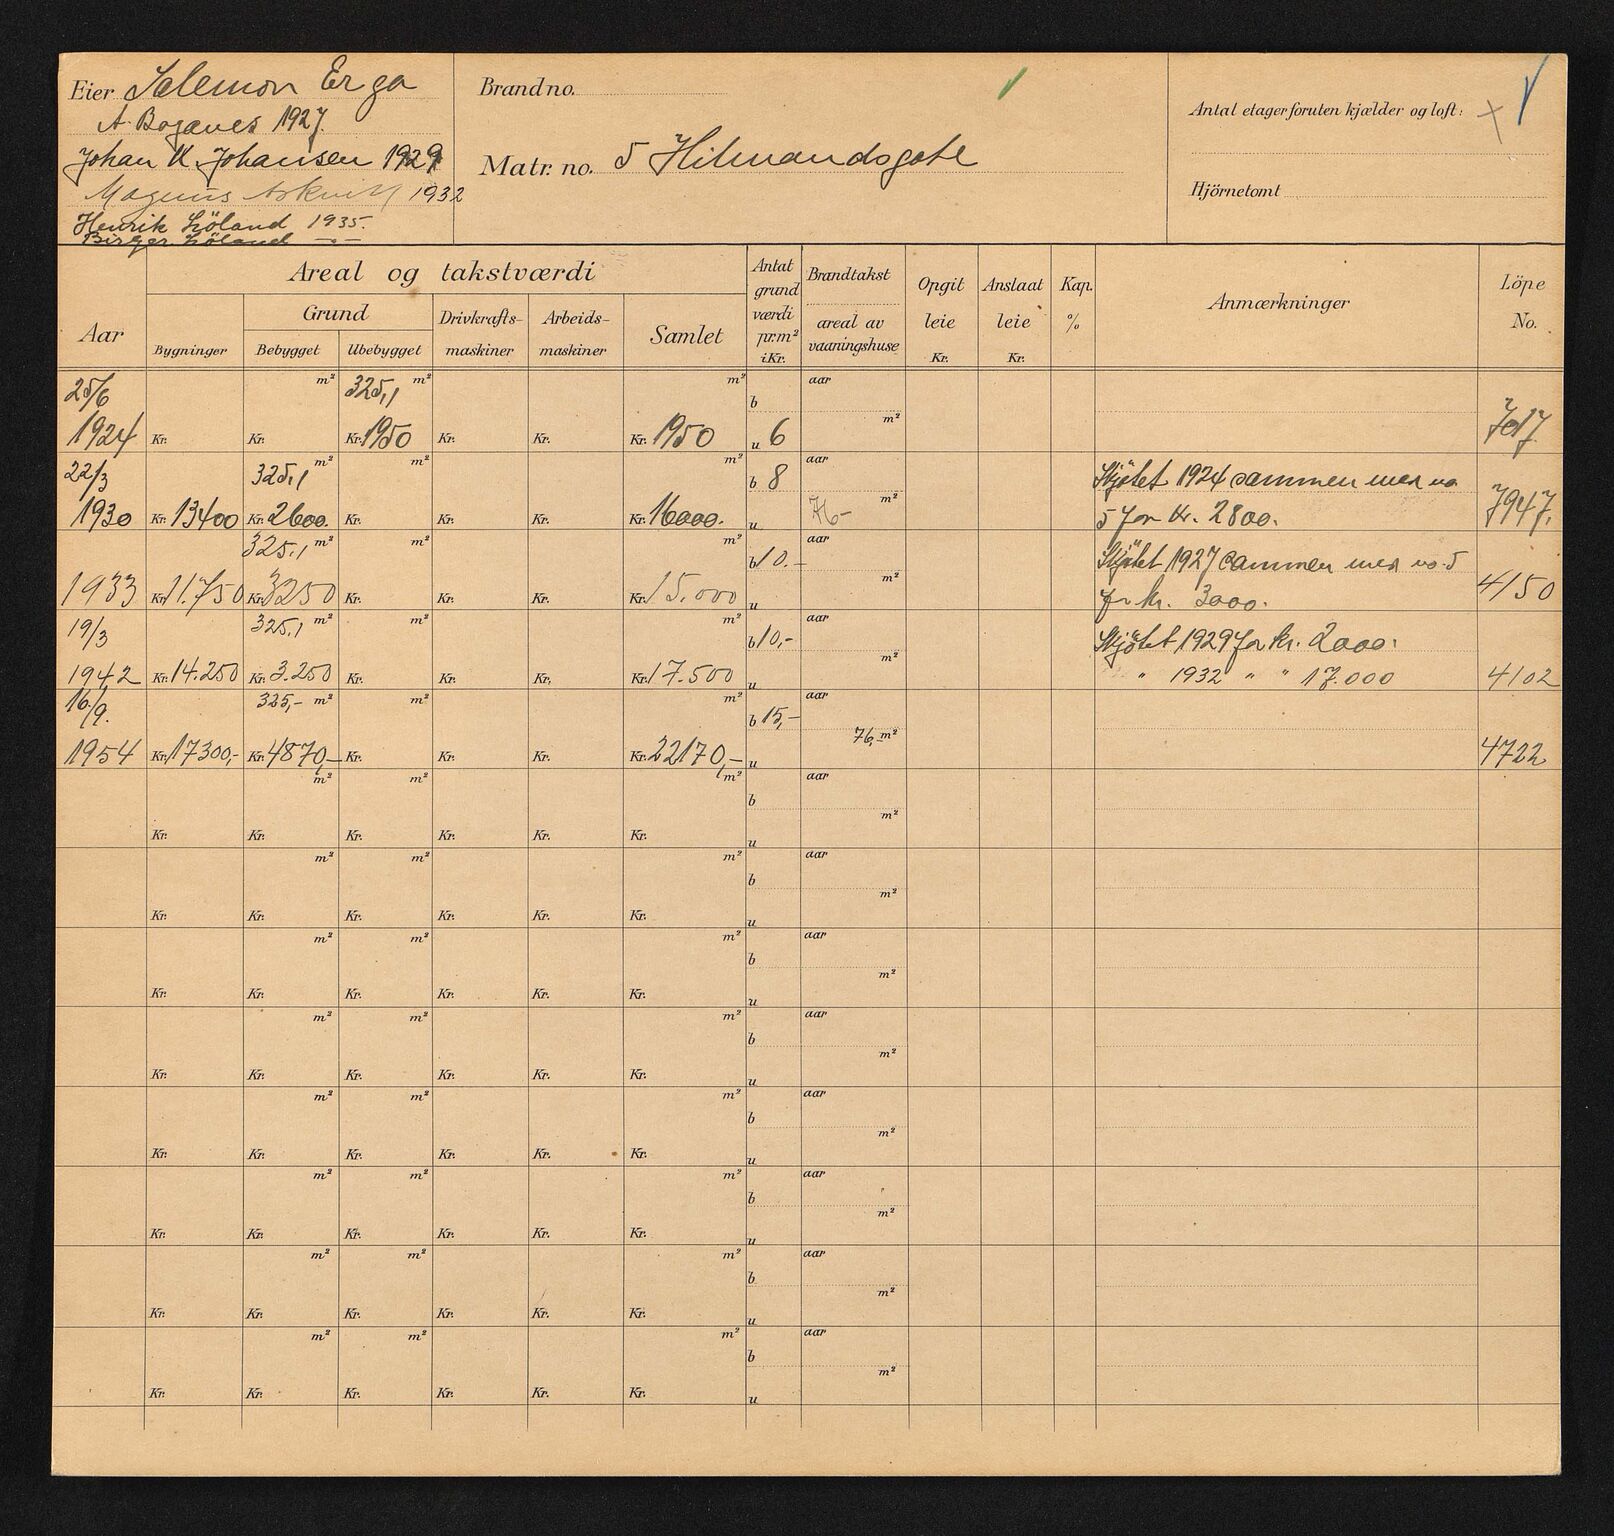 Eier Salemon Erga
A. Boganes 1927.
Johan K. Johansen 1929
Magnus 1932
Henrik Löland 1935.
Birger Löland -"-
Brand no.
Matr. no. 5 Hilmandsgate
Antal etager foruten kjælder og loft:
Hjörnetomt
Aar
Areal og takstværdi
Bygninger
Grund
Bebygget
Ubebygget
Drivkrafts-maskiner
Arbeids-maskiner
Samlet
Antat grund værdi pr. m² i Kr.
Brandtakst
areal av vaaningshuse
Opgit leie Kr.
Anslaat leie Kr.
Kap. %
Anmærkninger
Löpe No.
25/6 m² 325,1 m² m² b aar
1924 Kr. Kr. Kr. 1950 Kr. Kr. Kr. 1950 u 6 m² 7017.
22/3 325,1 m² m² m² b 8 aar Skjötet 1924 sammen med no
1930 Kr. 13400 Kr. 2600. Kr. Kr. Kr. Kr. 16000. u 76- m² 5 for Kr. 2800. 7947.
325,1 m² m² m² b 10.- aar Skjötet 1927 sammen med no. 5
1933 Kr. 11.750 Kr. 3250 Kr. Kr. Kr. Kr. 15.000 u m² for kr. 3000. 4150
19/3 325,1 m² m² m² b 10,- aar Skjötet 1929 for kr. 2000.
1942 Kr. 14.250 Kr. 3.250 Kr. Kr. Kr. Kr. 17.500 u m² " 1932 " " 17.000 4102
16/9. 325,- m² m² m² b 15,- aar
1954 Kr. 17300,- Kr. 4870,- Kr. Kr. Kr. Kr. 22170,- u 76,- m² 4722
m² m² m² b aar
Kr. Kr. Kr. Kr. Kr. Kr. u m²
m² m² m² b aar
Kr. Kr. Kr. Kr. Kr. Kr. u m²
m² m² m² b aar
Kr. Kr. Kr. Kr. Kr. Kr. u m²
m² m² m² b aar
Kr. Kr. Kr. Kr. Kr. Kr. u m²
m² m² m² b aar
Kr. Kr. Kr. Kr. Kr. Kr. u m²
m² m² m² b aar
Kr. Kr. Kr. Kr. Kr. Kr. u m²
m² m² m² b aar
Kr. Kr. Kr. Kr. Kr. Kr. u m²
m² m² m² b aar
Kr. Kr. Kr. Kr. Kr. Kr. u m²